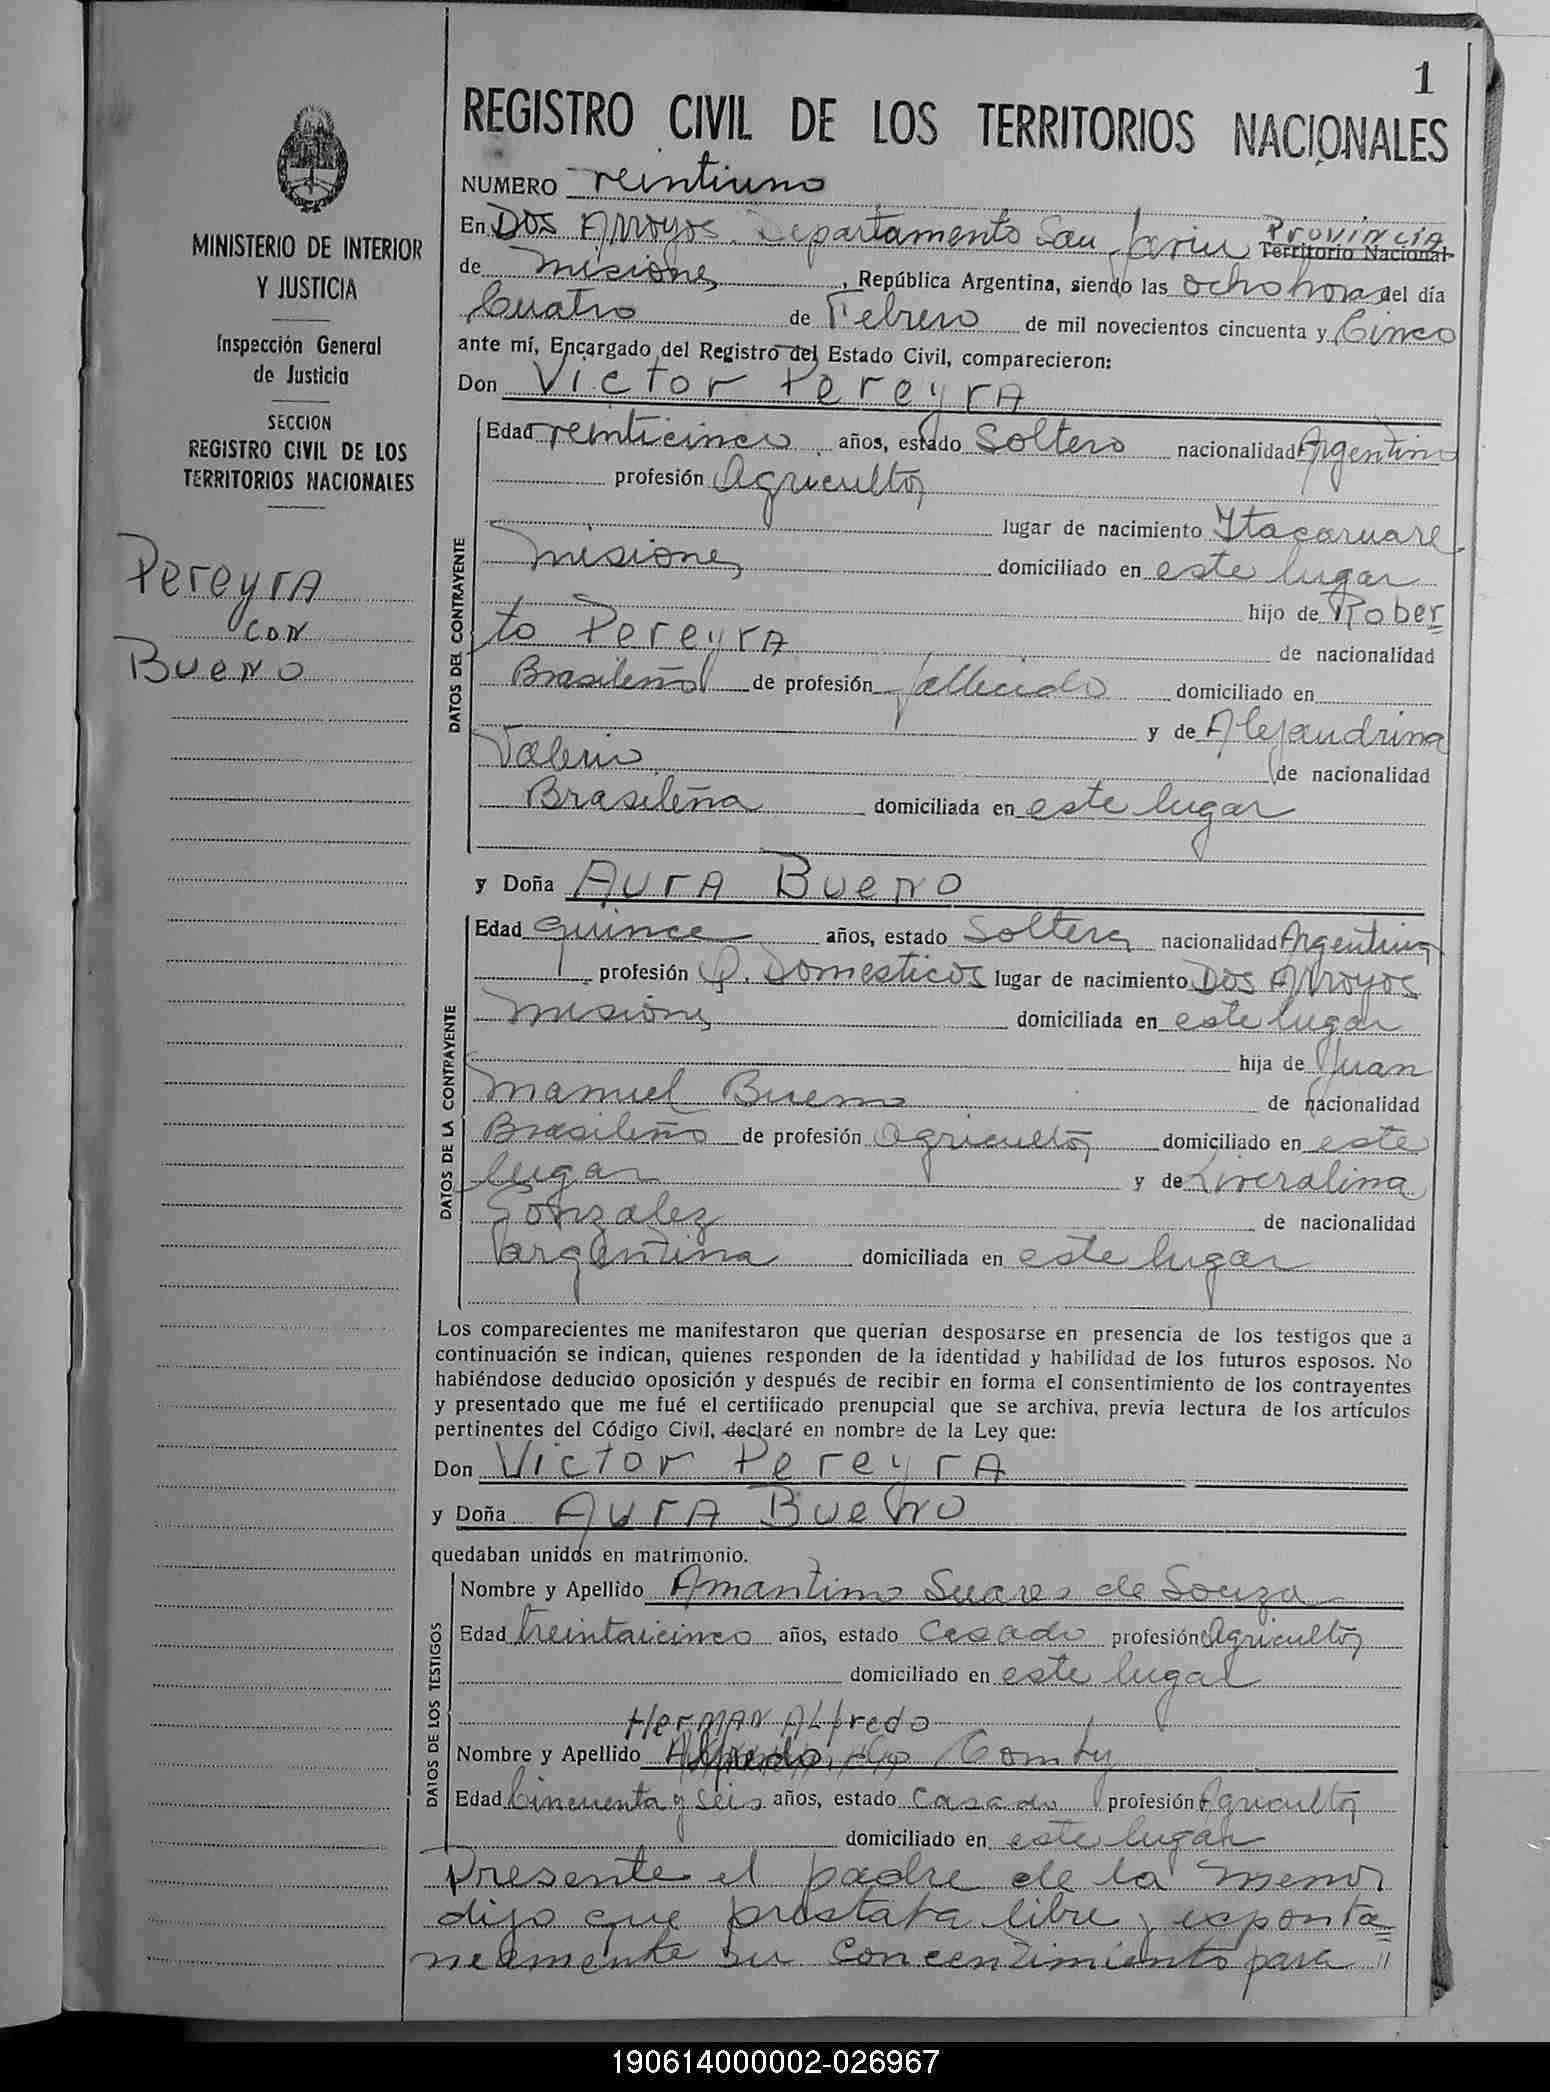 1
REGISTRO CIVIL DE LOS TERRITORIOS NACIONALES
MINISTERIO DE INTERIOR
Y JUSTICIA
Inspección General
de Justicia
SECCION
REGISTRO CIVIL DE LOS
TERRITORIOS NACIONALES
Pereyra
con
Bueno
NUMERO veintiuno
En Dos Arroyos Departamento San Javier Provincia Territorio Nacional
de Misiones, República Argentina, siendo las ocho horas del día
Cuatro de Febrero de mil novecientos cincuenta y Cinco
ante mí, Encargado del Registro del Estado Civil, comparecieron:
Don Victor Pereyra
DATOS DEL CONTRAYENTE
Edad veinticinco años, estado Soltero nacionalidad Argentino
profesión Agricultor
lugar de nacimiento Itacaruare
Misiones domiciliado en este lugar
hijo de Rober
to Pereyra de nacionalidad
Brasileño de profesión fallecido domiciliado en
y de Alejandrina
Valerio de nacionalidad
Brasileña domiciliada en este lugar
y Doña Aura Bueno
DATOS DE LA CONTRAYENTE
Edad quince años, estado Soltera nacionalidad Argentina
profesión Q. Domesticos lugar de nacimiento Dos Arroyos
Misiones domiciliada en este lugar
hija de Juan
Manuel Bueno de nacionalidad
Brasileño de profesión Agricultor domiciliado en este
lugar y de Liveralina
Gonzalez de nacionalidad
argentina domiciliada en este lugar
Los comparecientes me manifestaron que querían desposarse en presencia de los testigos que a
continuación se indican, quienes responden de la identidad y habilidad de los futuros esposos. No
habiéndose deducido oposición y después de recibir en forma el consentimiento de los contrayentes
y presentado que me fué el certificado prenupcial que se archiva, previa lectura de los artículos
pertinentes del Código Civil, declaré en nombre de la Ley que:
Don Victor Pereyra
y Doña Aura Bueno
quedaban unidos en matrimonio.
DATOS DE LOS TESTIGOS
Nombre y Apellido Amantino Suares de Souza
Edad treintaicinco años, estado Casado profesión Agricultor
domiciliado en este lugar
Herman Alfredo
Nombre y Apellido
Edad Cincuenta y seis años, estado Casado profesión Agricultor
domiciliado en este lugar
Presente el padre de la menor
dijo que prestava libre y exponta
neamente su concentimiento para
190614000002-026967